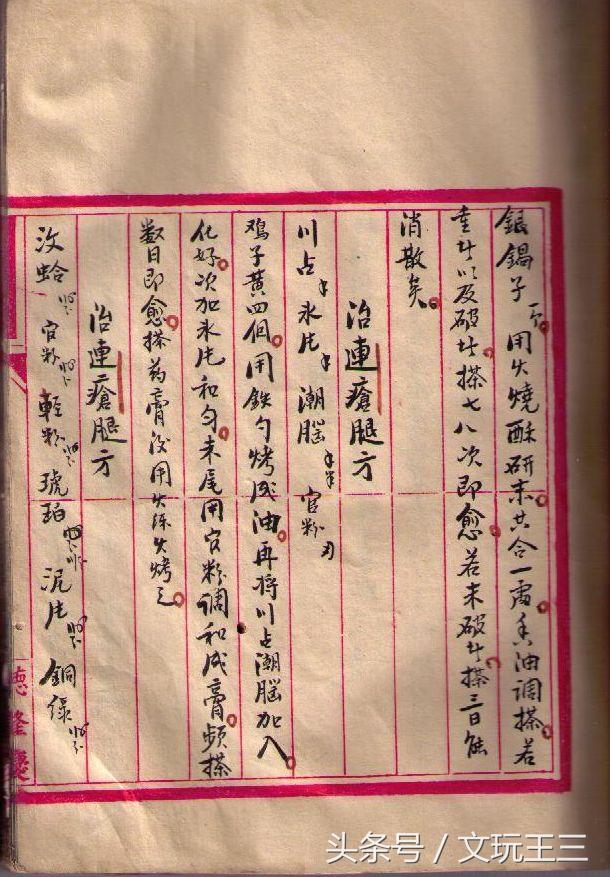 銀鍋子一ケ用火燒酥研末共合一處香油調搽若
重者以及破者搽七八次即愈若未破者搽三日能
消散矣
治連瘡腿方
川占 氷片 潮腦 官粉
鸡子黄四個用鉄勺烤成油再将川占潮腦加入
化好次加氷片和匀末尾用官粉調和成膏頻搽
数日即愈搽药膏後用火烤之
治連瘡腿方
汶蛤 官粉 輕粉 琥珀 泥片 銅绿
德隆
头条号 / 文玩王三